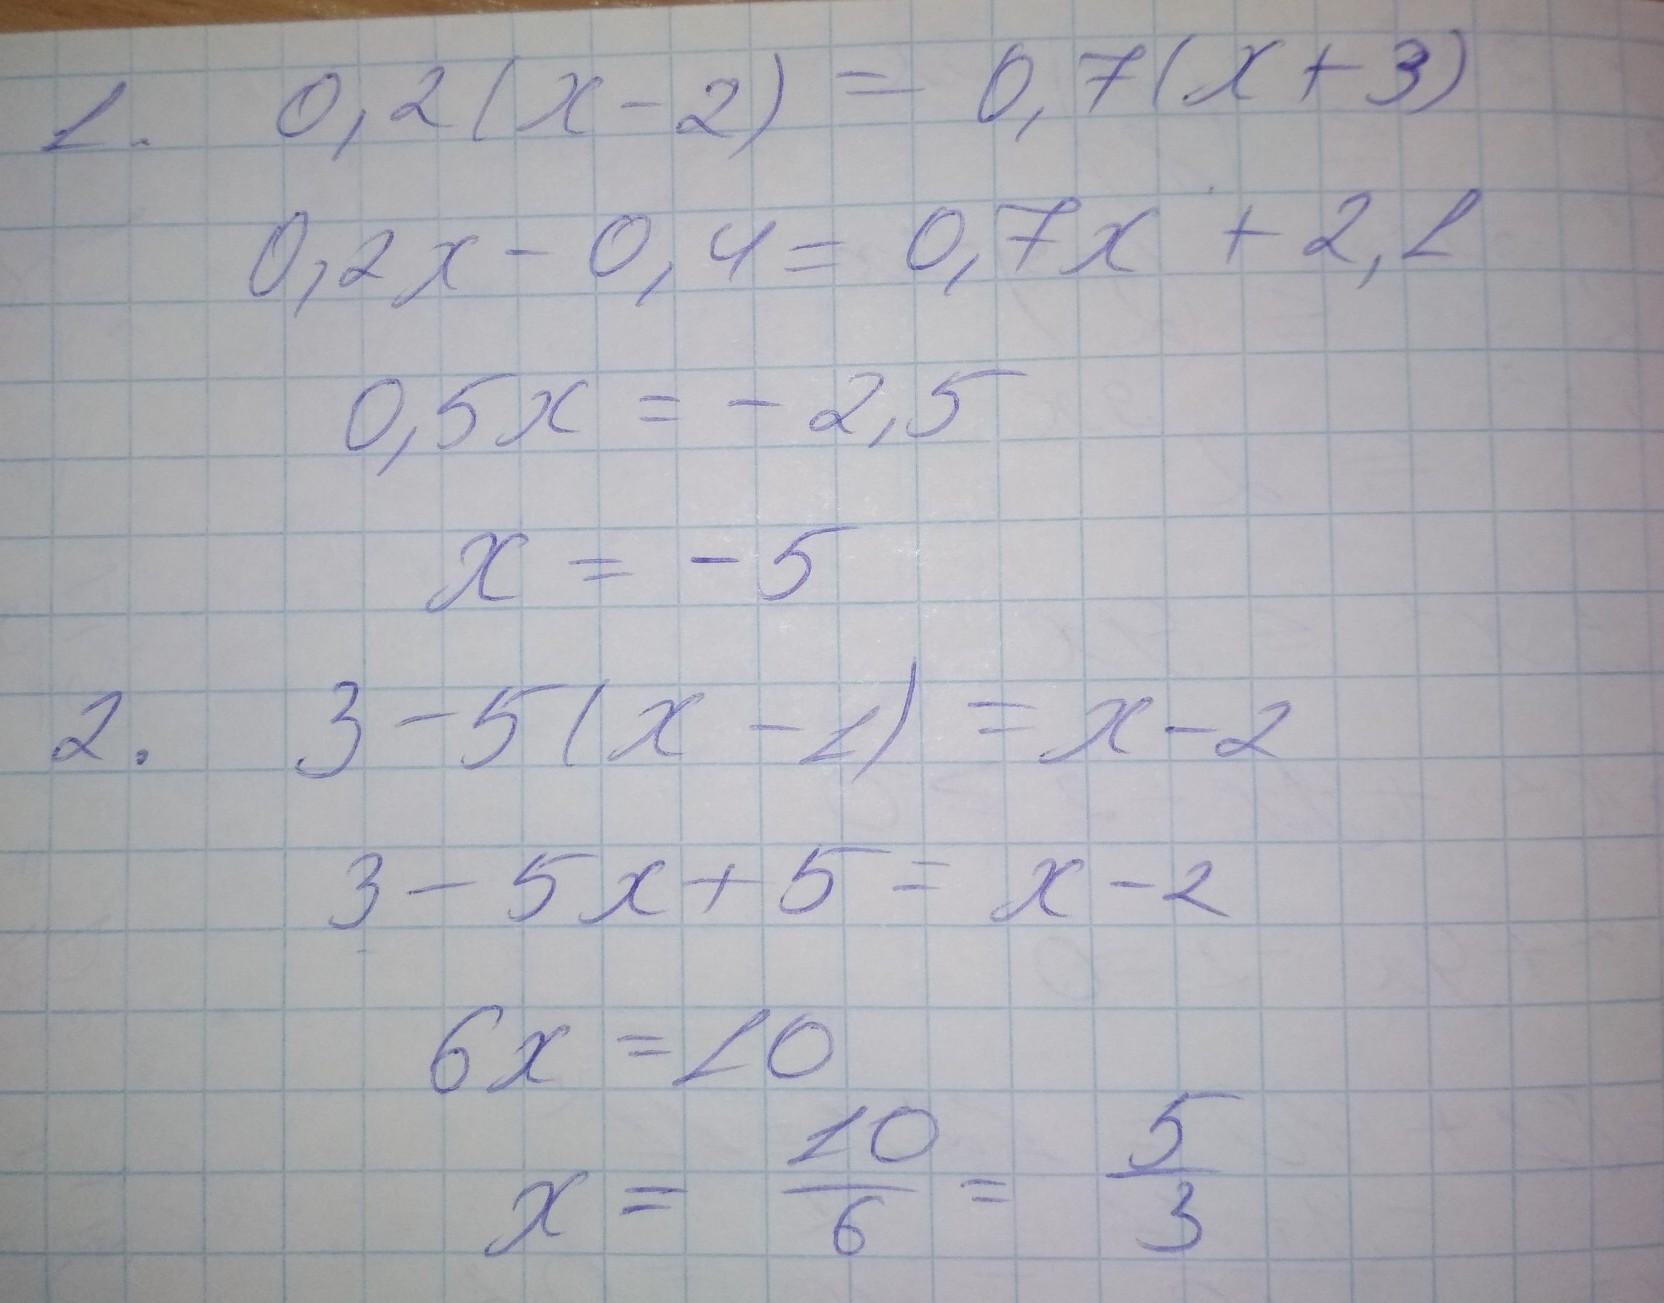 1. 0,2(x-2) = 0,7(x+3)
0,2x - 0,4 = 0,7x + 2,1
0,5x = -2,5
x = -5
2. 3-5(x-1) = x-2
3-5x+5 = x-2
6x = 10
x = 10/6 = 5/3